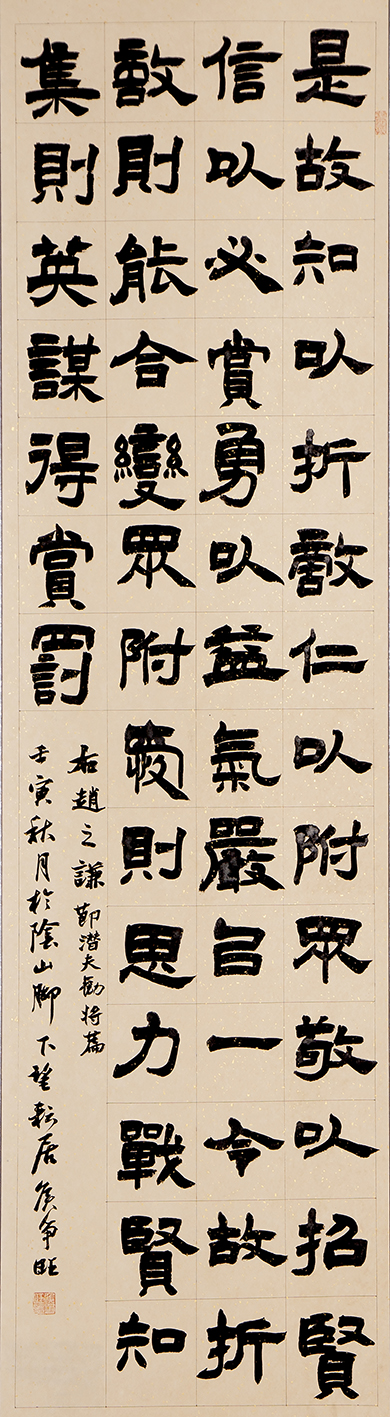 是故知以折敵仁以附眾敬以招賢
信以必賞勇以益氣嚴以一令故折
敵則能合變眾附愛則思力戰賢知
集則英謀得賞罰
右趙之謙節潛夫勸將篇
壬寅秋月於陰山腳下望耘居侯争旺